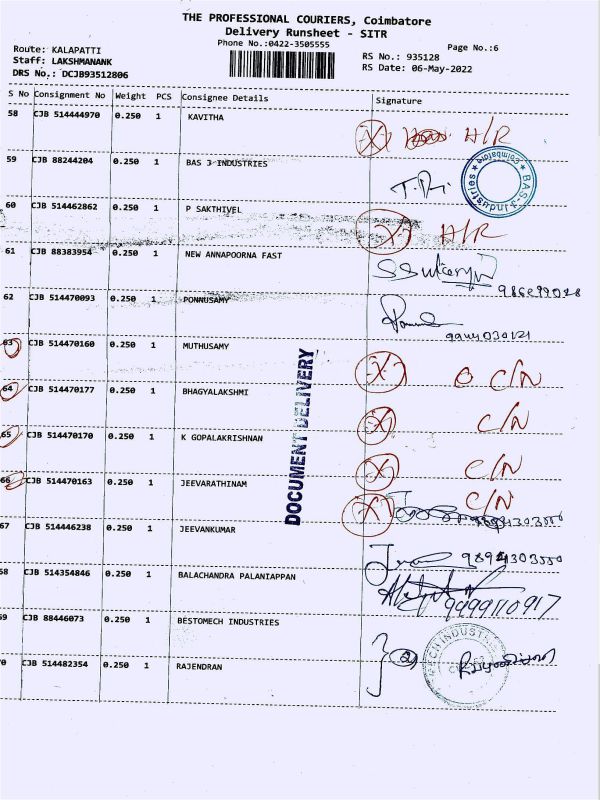 THE PROFESSIONAL COURIERS, Coimbatore
Delivery Runsheet - SITR
Phone No.:0422-3505555
Page No.:6
Route: KALAPATTI
Staff: LAKSHMANANK
DRS No.: DCJB93512806
RS No.: 935128
RS Date: 06-May-2022
S No Consignment No Weight PCS Consignee Details Signature
58 CJB 514444970 0.250 1 KAVITHA A/R
59 CJB 88244204 0.250 1 BAS J INDUSTRIES
BAS-3-Industries * Coimbatore *
60 CJB 514462862 0.250 1 P SAKTHIVEL A/R
61 CJB 88383954 0.250 1 NEW ANNAPOORNA FAST
62 CJB 514470093 0.250 1 PONNUSAMY
63 CJB 514470160 0.250 1 MUTHUSAMY C/N
64 CJB 514470177 0.250 1 BHAGYALAKSHMI C/N
65 CJB 514470170 0.250 1 K GOPALAKRISHNAN C/N
66 CJB 514470163 0.250 1 JEEVARATHINAM C/N
DOCUMENT DELIVERY
67 CJB 514446238 0.250 1 JEEVANKUMAR 9894303550
68 CJB 514354846 0.250 1 BALACHANDRA PALANIAPPAN 9999110917
69 CJB 88446073 0.250 1 BESTOMECH INDUSTRIES
70 CJB 514482354 0.250 1 RAJENDRAN 2